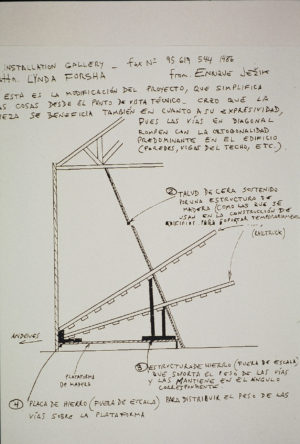 INSTALLATION GALLERY - FAX Nº 95 619 544 1986
Attn. LYNDA FORSHA from: ENRIQUE JEŽIK
ESTA ES LA MODIFICACIÓN DEL PROYECTO, QUE SIMPLIFICA
AS COSAS DESDE EL PUNTO DE VISTA TÉCNICO. CREO QUE LA
EZA SE BENEFICIA TAMBIÉN EN CUANTO A SU EXPRESIVIDAD,
PUES LAS VÍAS EN DIAGONAL
ROMPEN CON LA ORTOGONALIDAD
PREDOMINANTE EN EL EDIFICIO
(PAREDES, VIGAS DEL TECHO, ETC.).
② TALUD DE CERA SOSTENIDO
POR UNA ESTRUCTURA DE
MADERA (COMO LAS QUE SE
USAN EN LA CONSTRUCCIÓN DE
EDIFICIOS PARA SOPORTAR TEMPORARIAMENTE
(RAILTRACK)
ANDENES
PLATAFORMA
DE MADERA
③ ESTRUCTURA DE HIERRO (FUERA DE ESCALA)
QUE SOPORTA EL PESO DE LAS VÍAS
Y LAS MANTIENE EN EL ÁNGULO
CORRESPONDIENTE
④ PLACA DE HIERRO (FUERA DE ESCALA) PARA DISTRIBUIR EL PESO DE LAS
VÍAS SOBRE LA PLATAFORMA